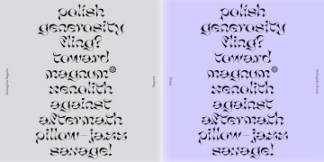 polish
generosity
fling?
toward
magnum
xenolith
against
aftermath
pillow-jazz
savage!
polish
generosity
fling?
toward
magnum
xenolith
against
aftermath
pillow-jazz
savage!